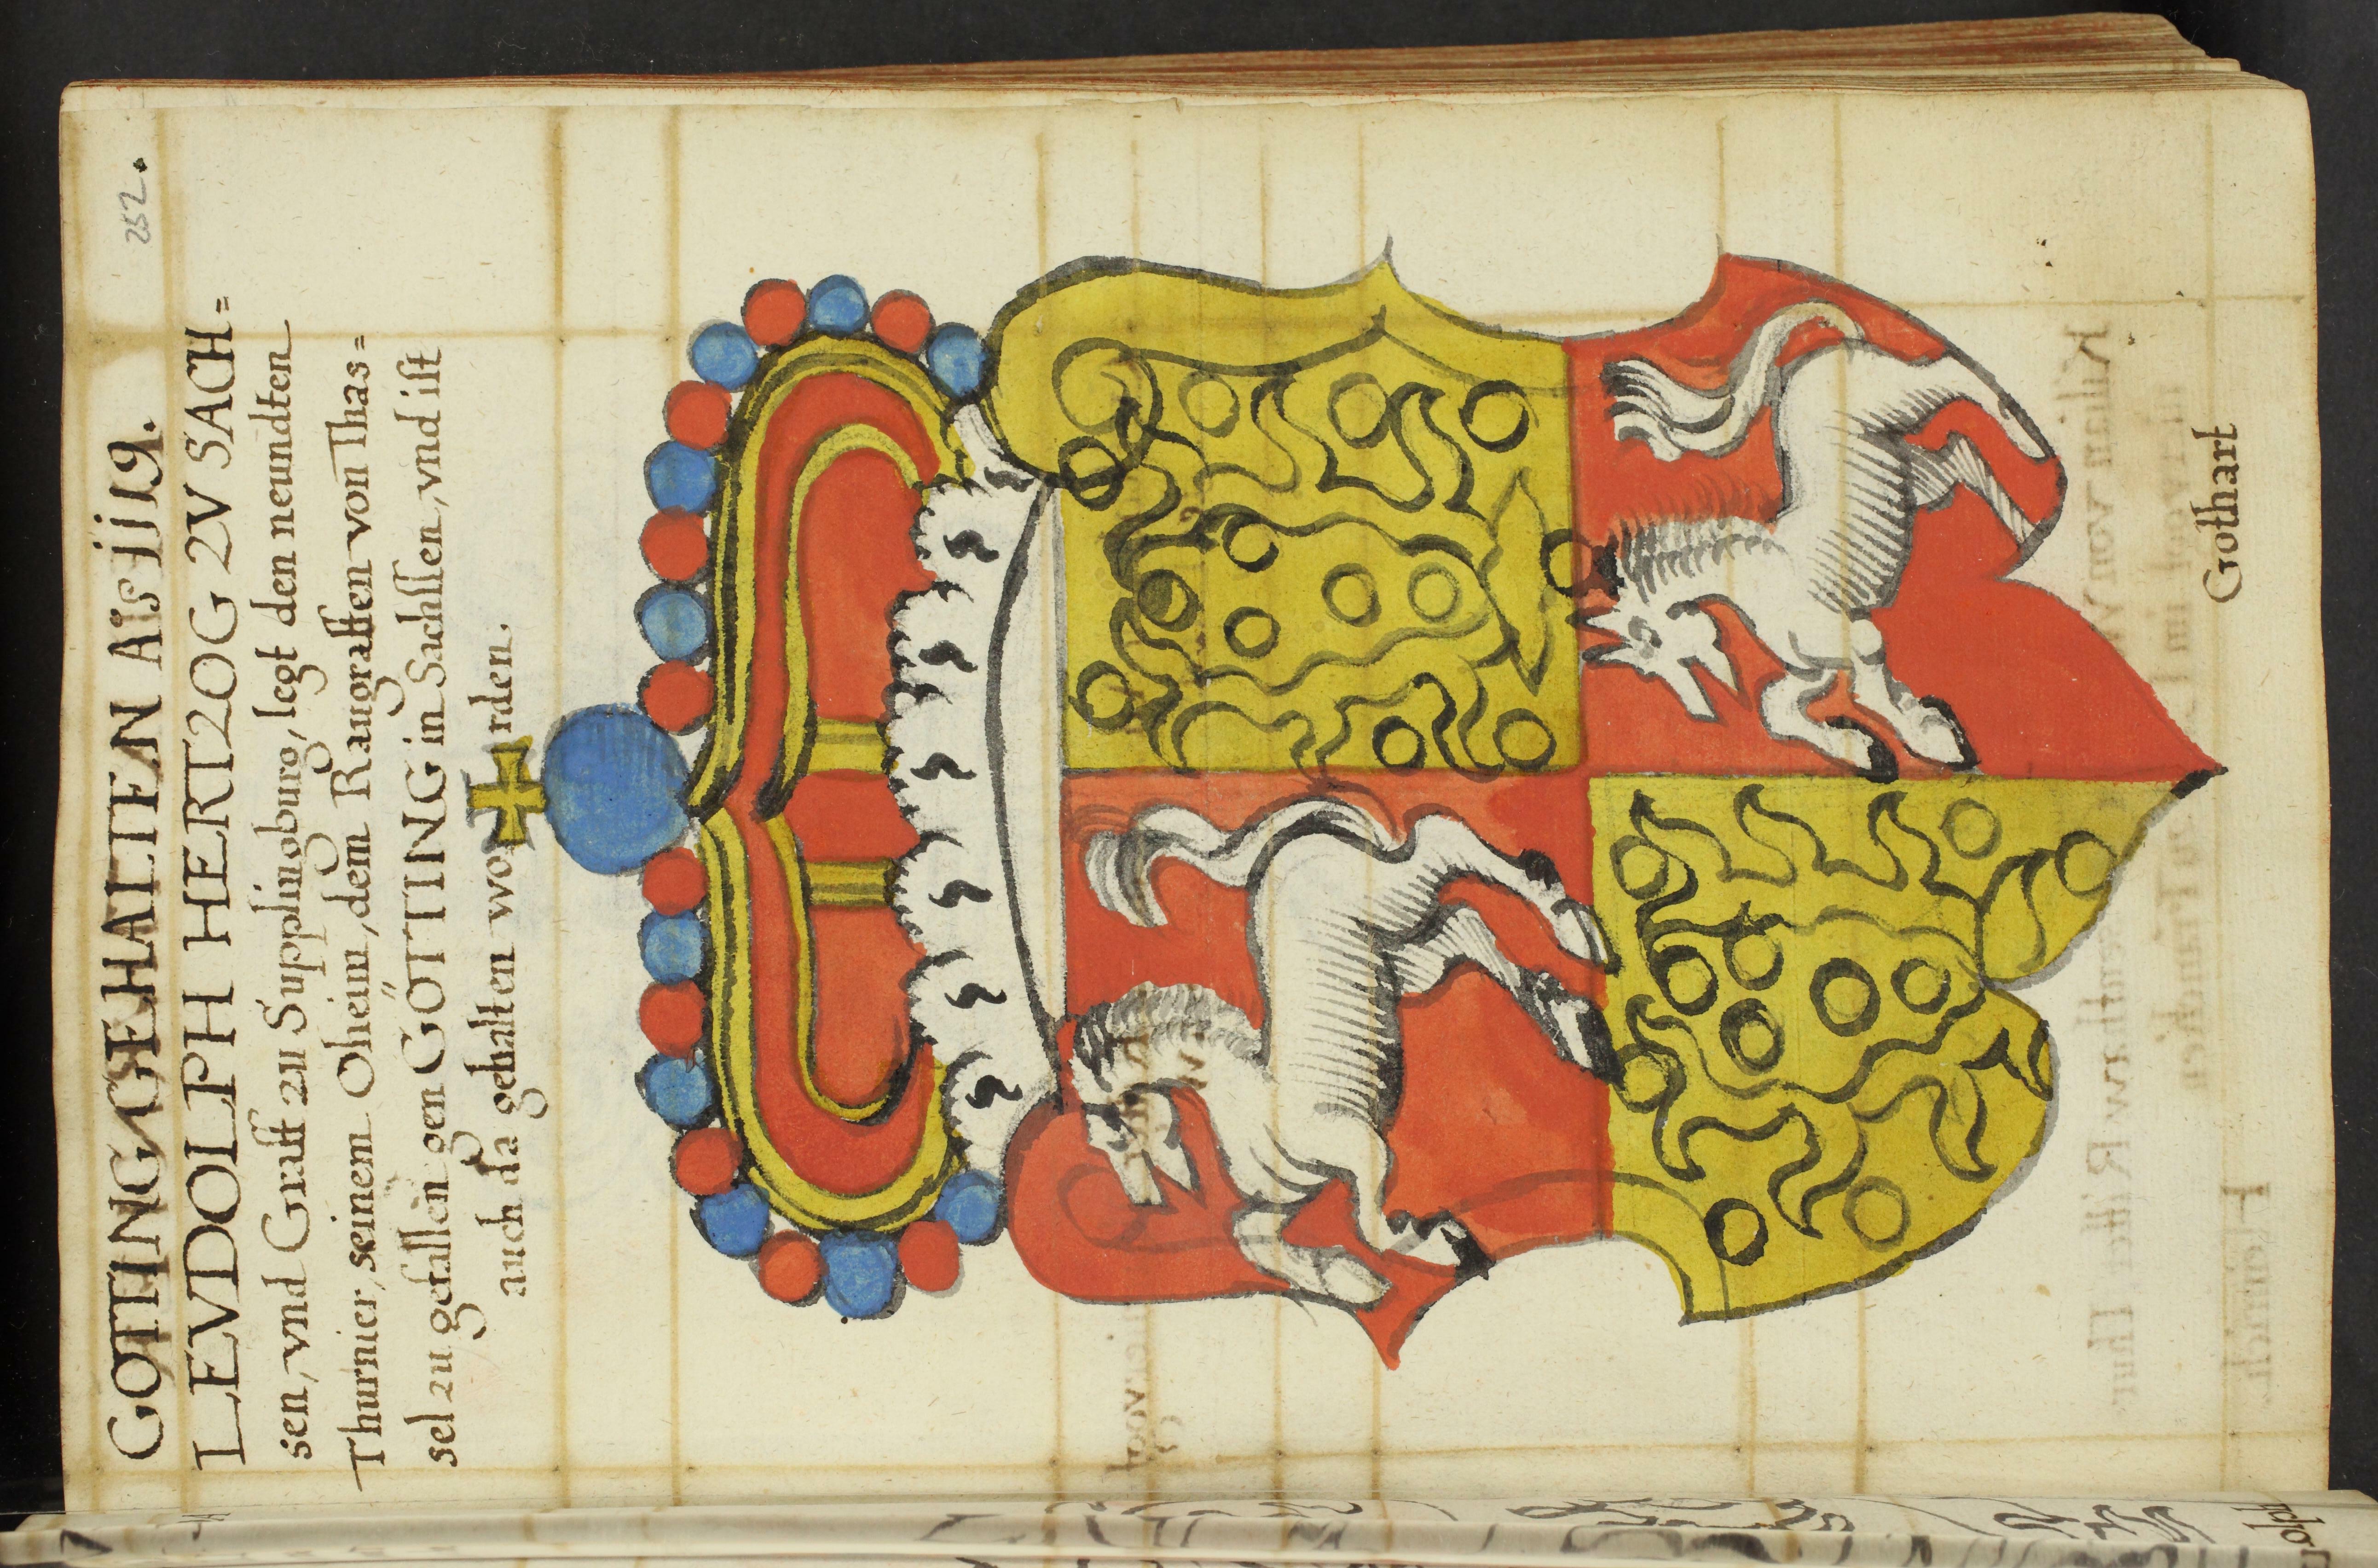 252.
GÖTTING GEHALTEN A͞IS jj19.
LEVDOLPH HERTZOG ZV SACH=
sen, vnd Graff zu Supplingburg, legt den neundten
Thurnier, seinem Oheim, dem Raugraffen von Thas=
sel zu gefallen gen GÖTTING in Sachssen, vnd ist
auch da gehalten worden.
Gothart